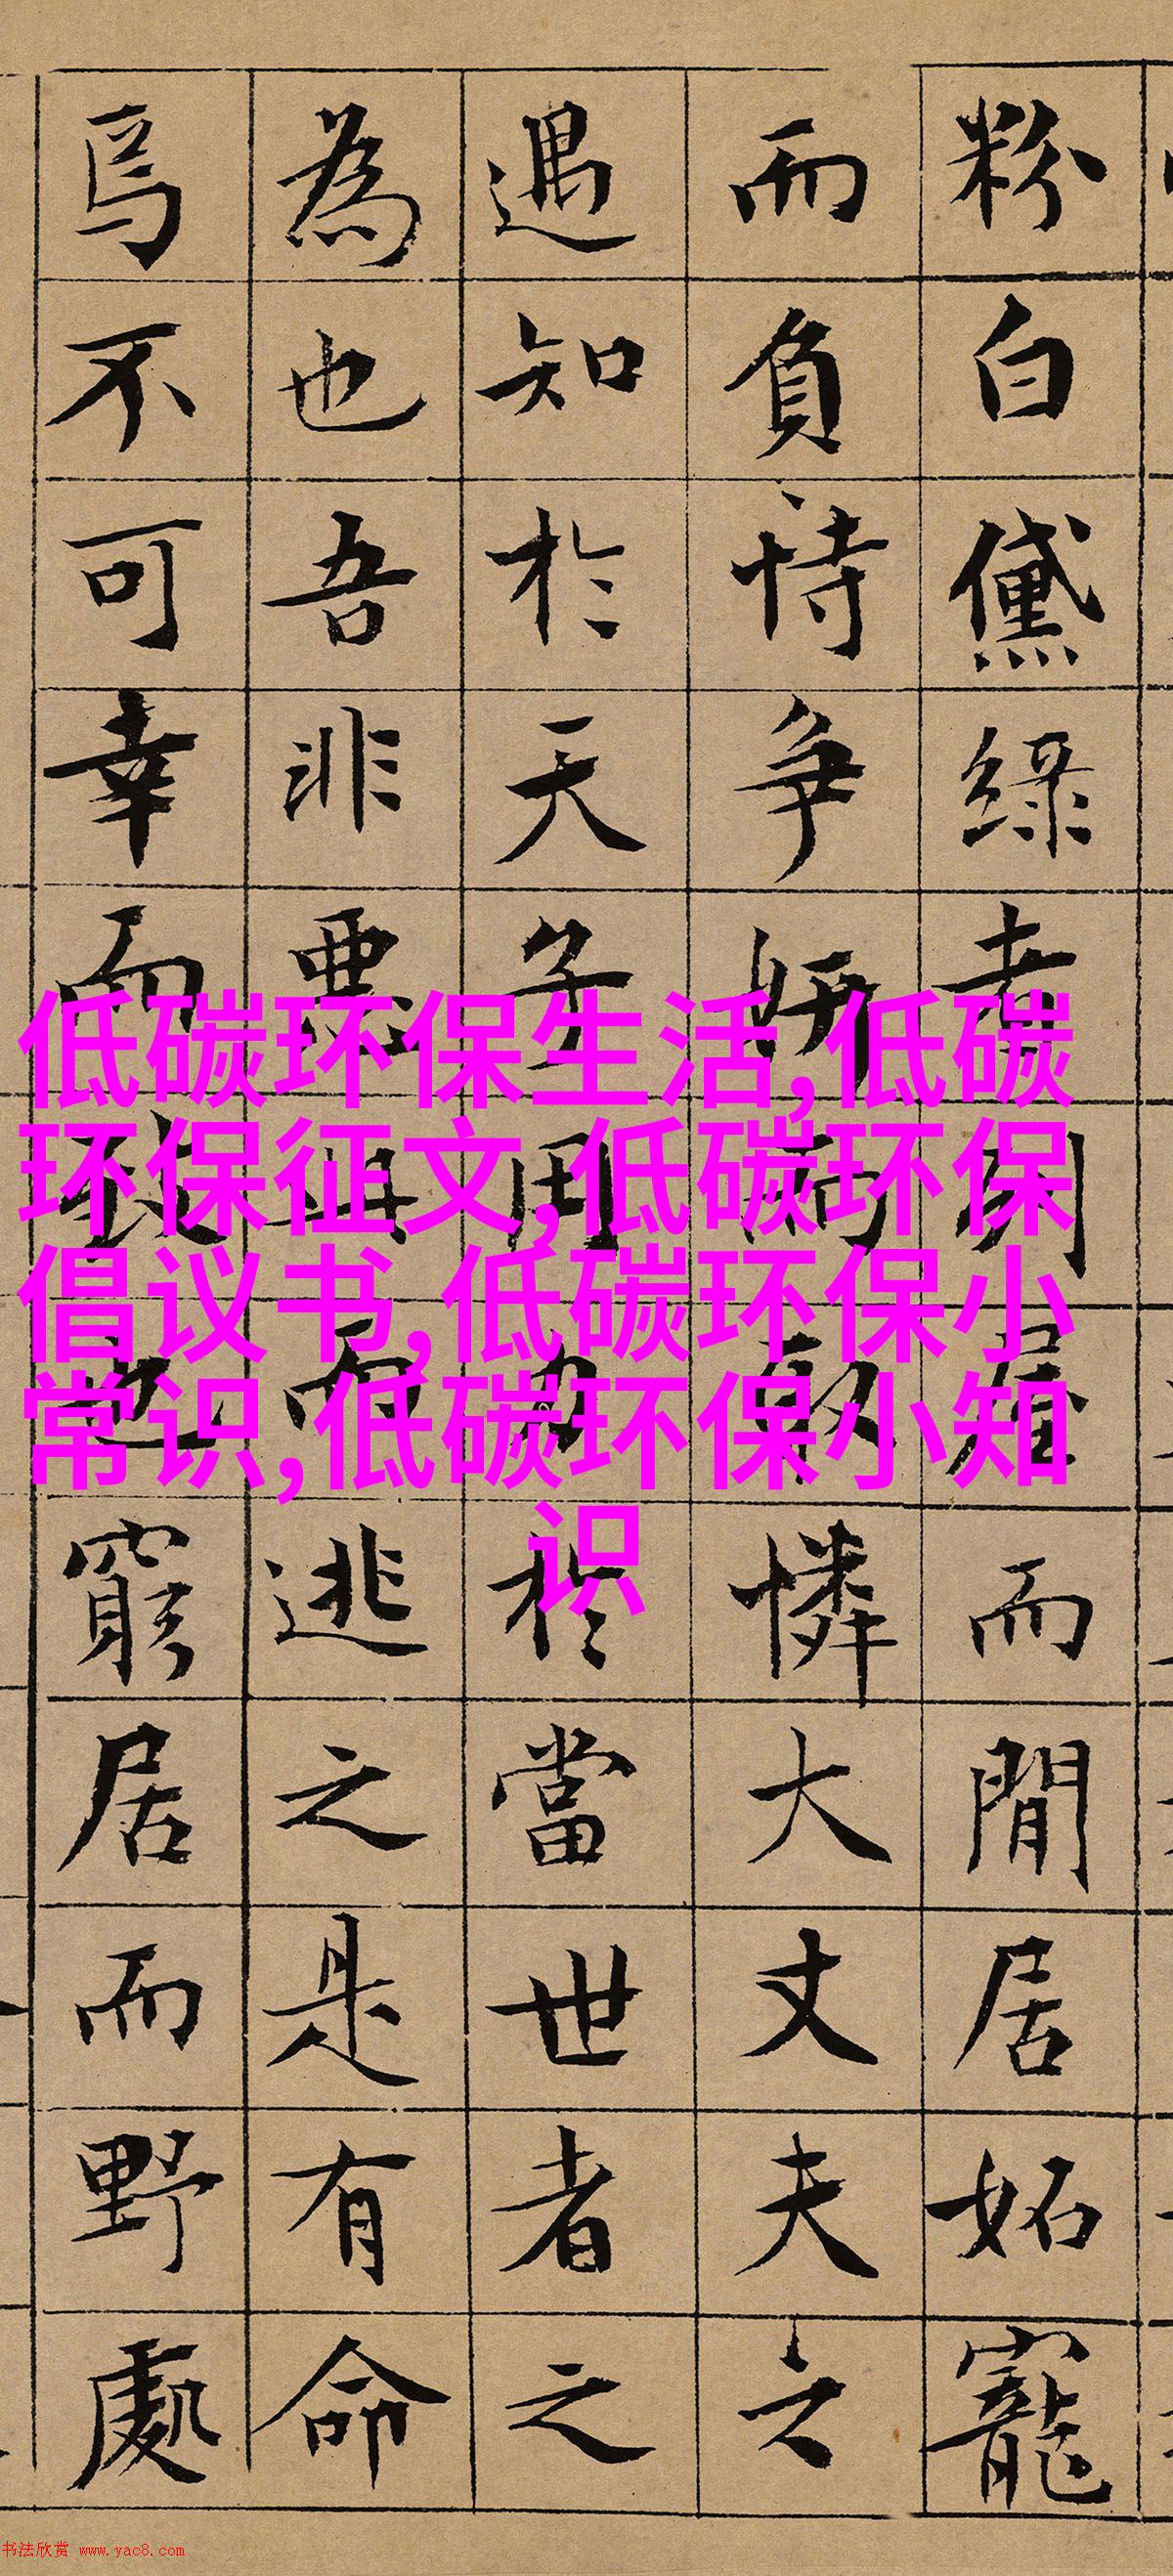 粉白黛綠者列屋而閒居妬寵
而負恃爭妍而取憐大丈夫之
遇知於天子用力於當世者之
為也吾非惡此而逃之是有命
焉不可幸而致也窮居而野處
低碳环保生活,低碳
环保征文,低碳环保
倡议书,低碳环保小
常识,低碳环保小知
识
书法欣赏 www.yac8.com